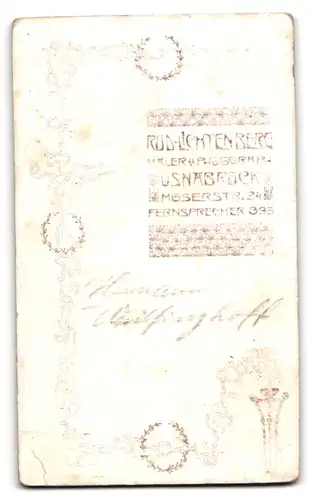 RUD. LICHTENBERG
MALER u. PHOTOGRAPH
OSNABRÜCK
MÖSERSTR. 24
FERNSPRECHER 395
Hermann